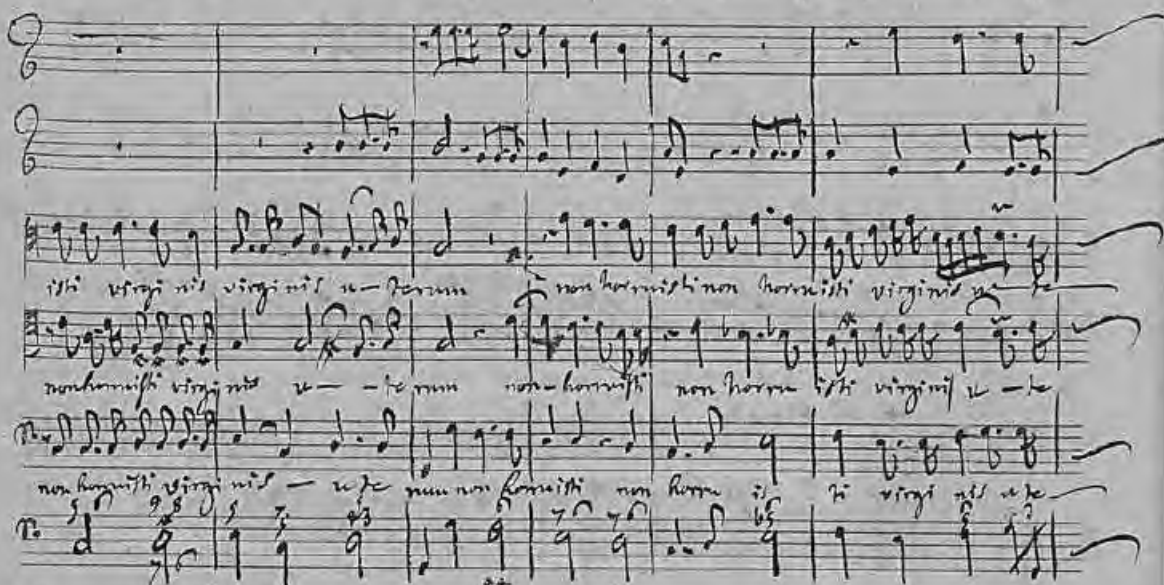 isti virginis virginis u - terum non horruisti non horruisti virginis u - te
non horruisti virginis u - - terum non - horruisti non horru isti virginis u - te
non horruisti virginis - u te rum non horruisti non horru is ti virgi nis u te